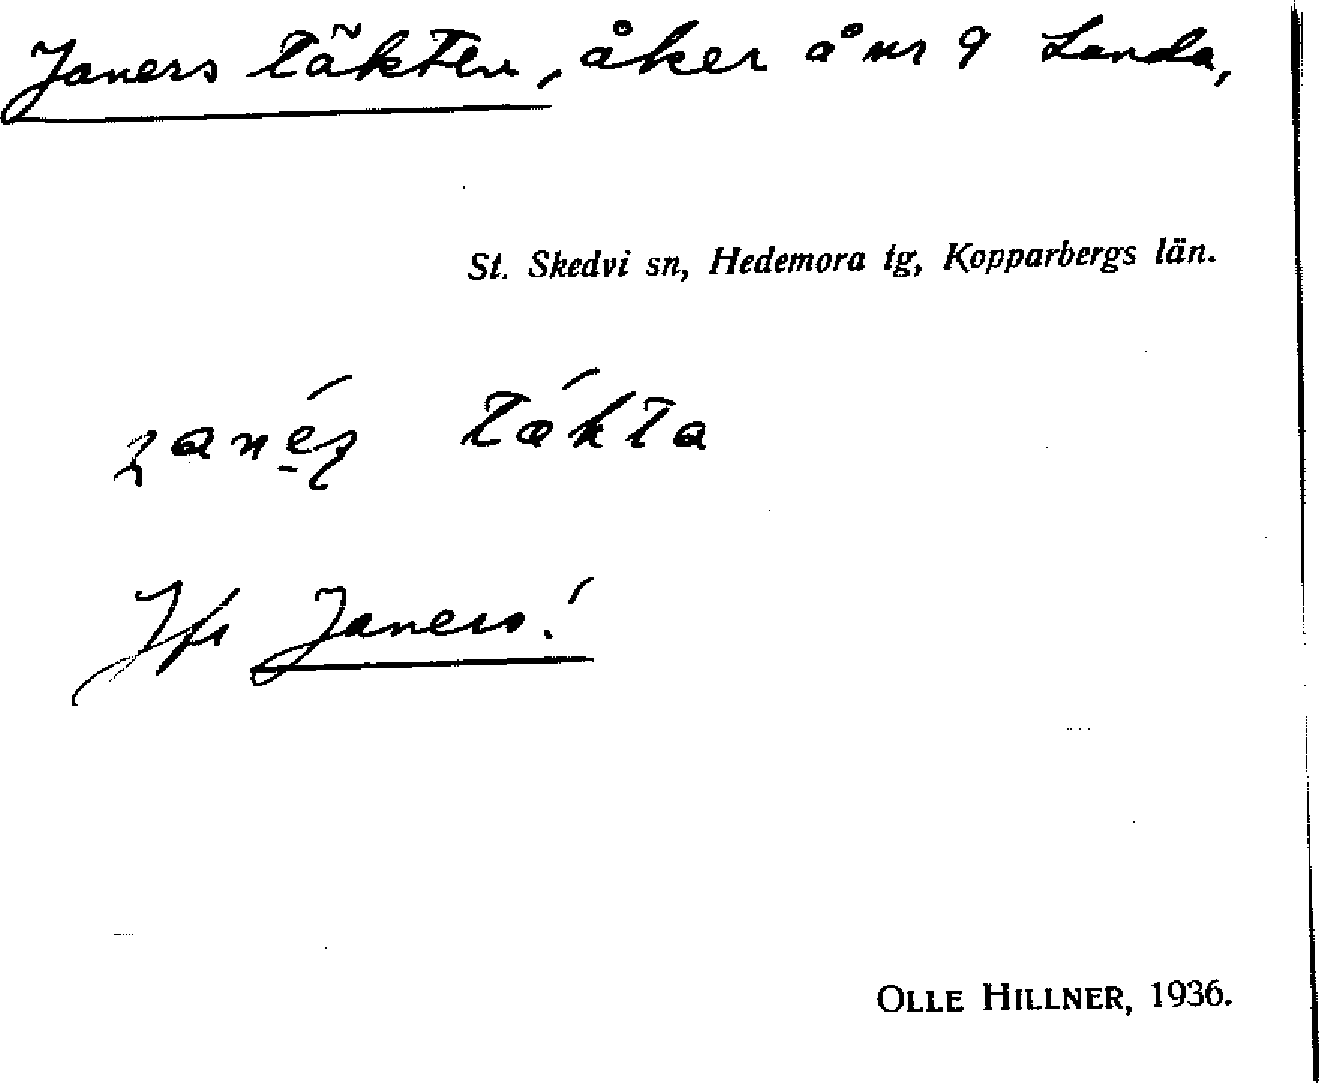 Janers täkten, åker å nr 9 Landa,
St. Skedvi sn, Hedemora tg, Kopparbergs län.
tákta
Jfr Janers!
OLLE HILLNER, 1936.